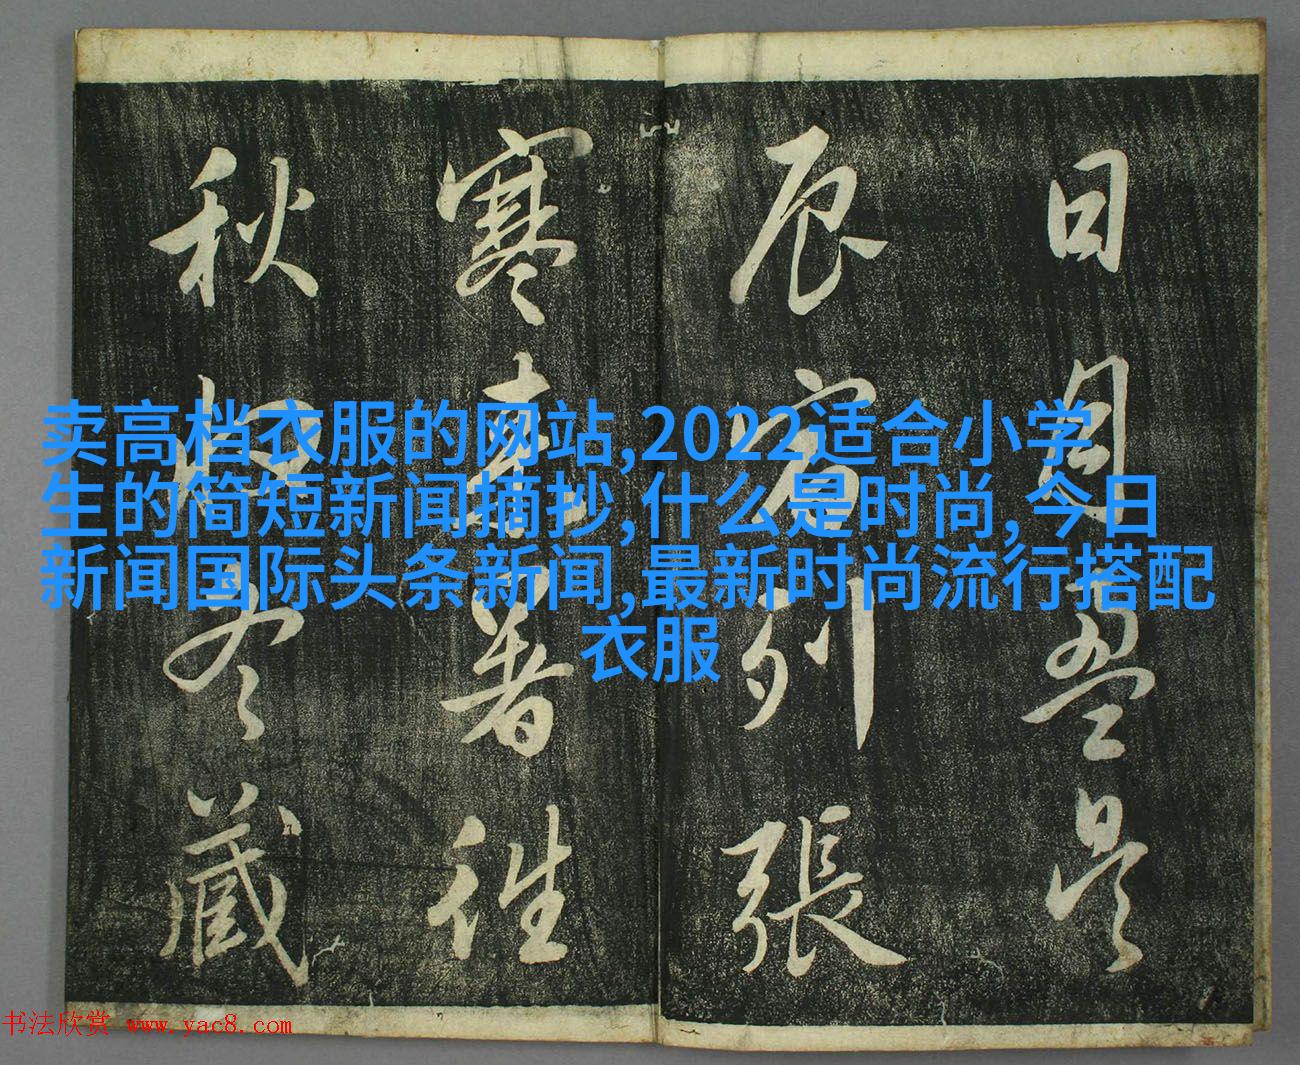 日月盈昃
辰宿列張
寒来暑往
秋收冬藏
卖高档衣服的网站,2022适合小学
生的简短新闻摘抄,什么是时尚,今日
新闻国际头条新闻,最新时尚流行搭配
衣服
书法欣赏 www.yac8.com